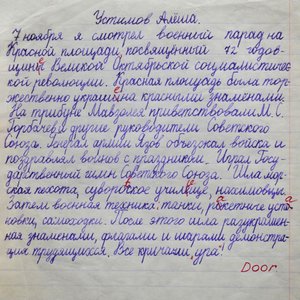 Устимов Алёша.
7 ноября я смотрел военный парад на
Красной площади, посвящённый 72 годов-
щине Великой Октябрьской социалистичес-
кой революции. Красная площадь была тор-
жественно украшена красными знамёнами.
На трибуне Мавзолея приветствовали М.С.
Горбачев и другие руководители Советского
Союза. Генерал армии Язов объезжал войска и
поздравлял воинов с праздником. Играл Госу-
дарственный гимн Советского Союза. Шла мор-
ская пехота, суворовское училище, нахимовцы.
Затем военная техника: танки, ракетные уста-
новки, самоходки. После этого шла разукрашен-
ная знаменами, флагами и шарами демонстра-
ция трудящихся. Все кричали „ура".
Door